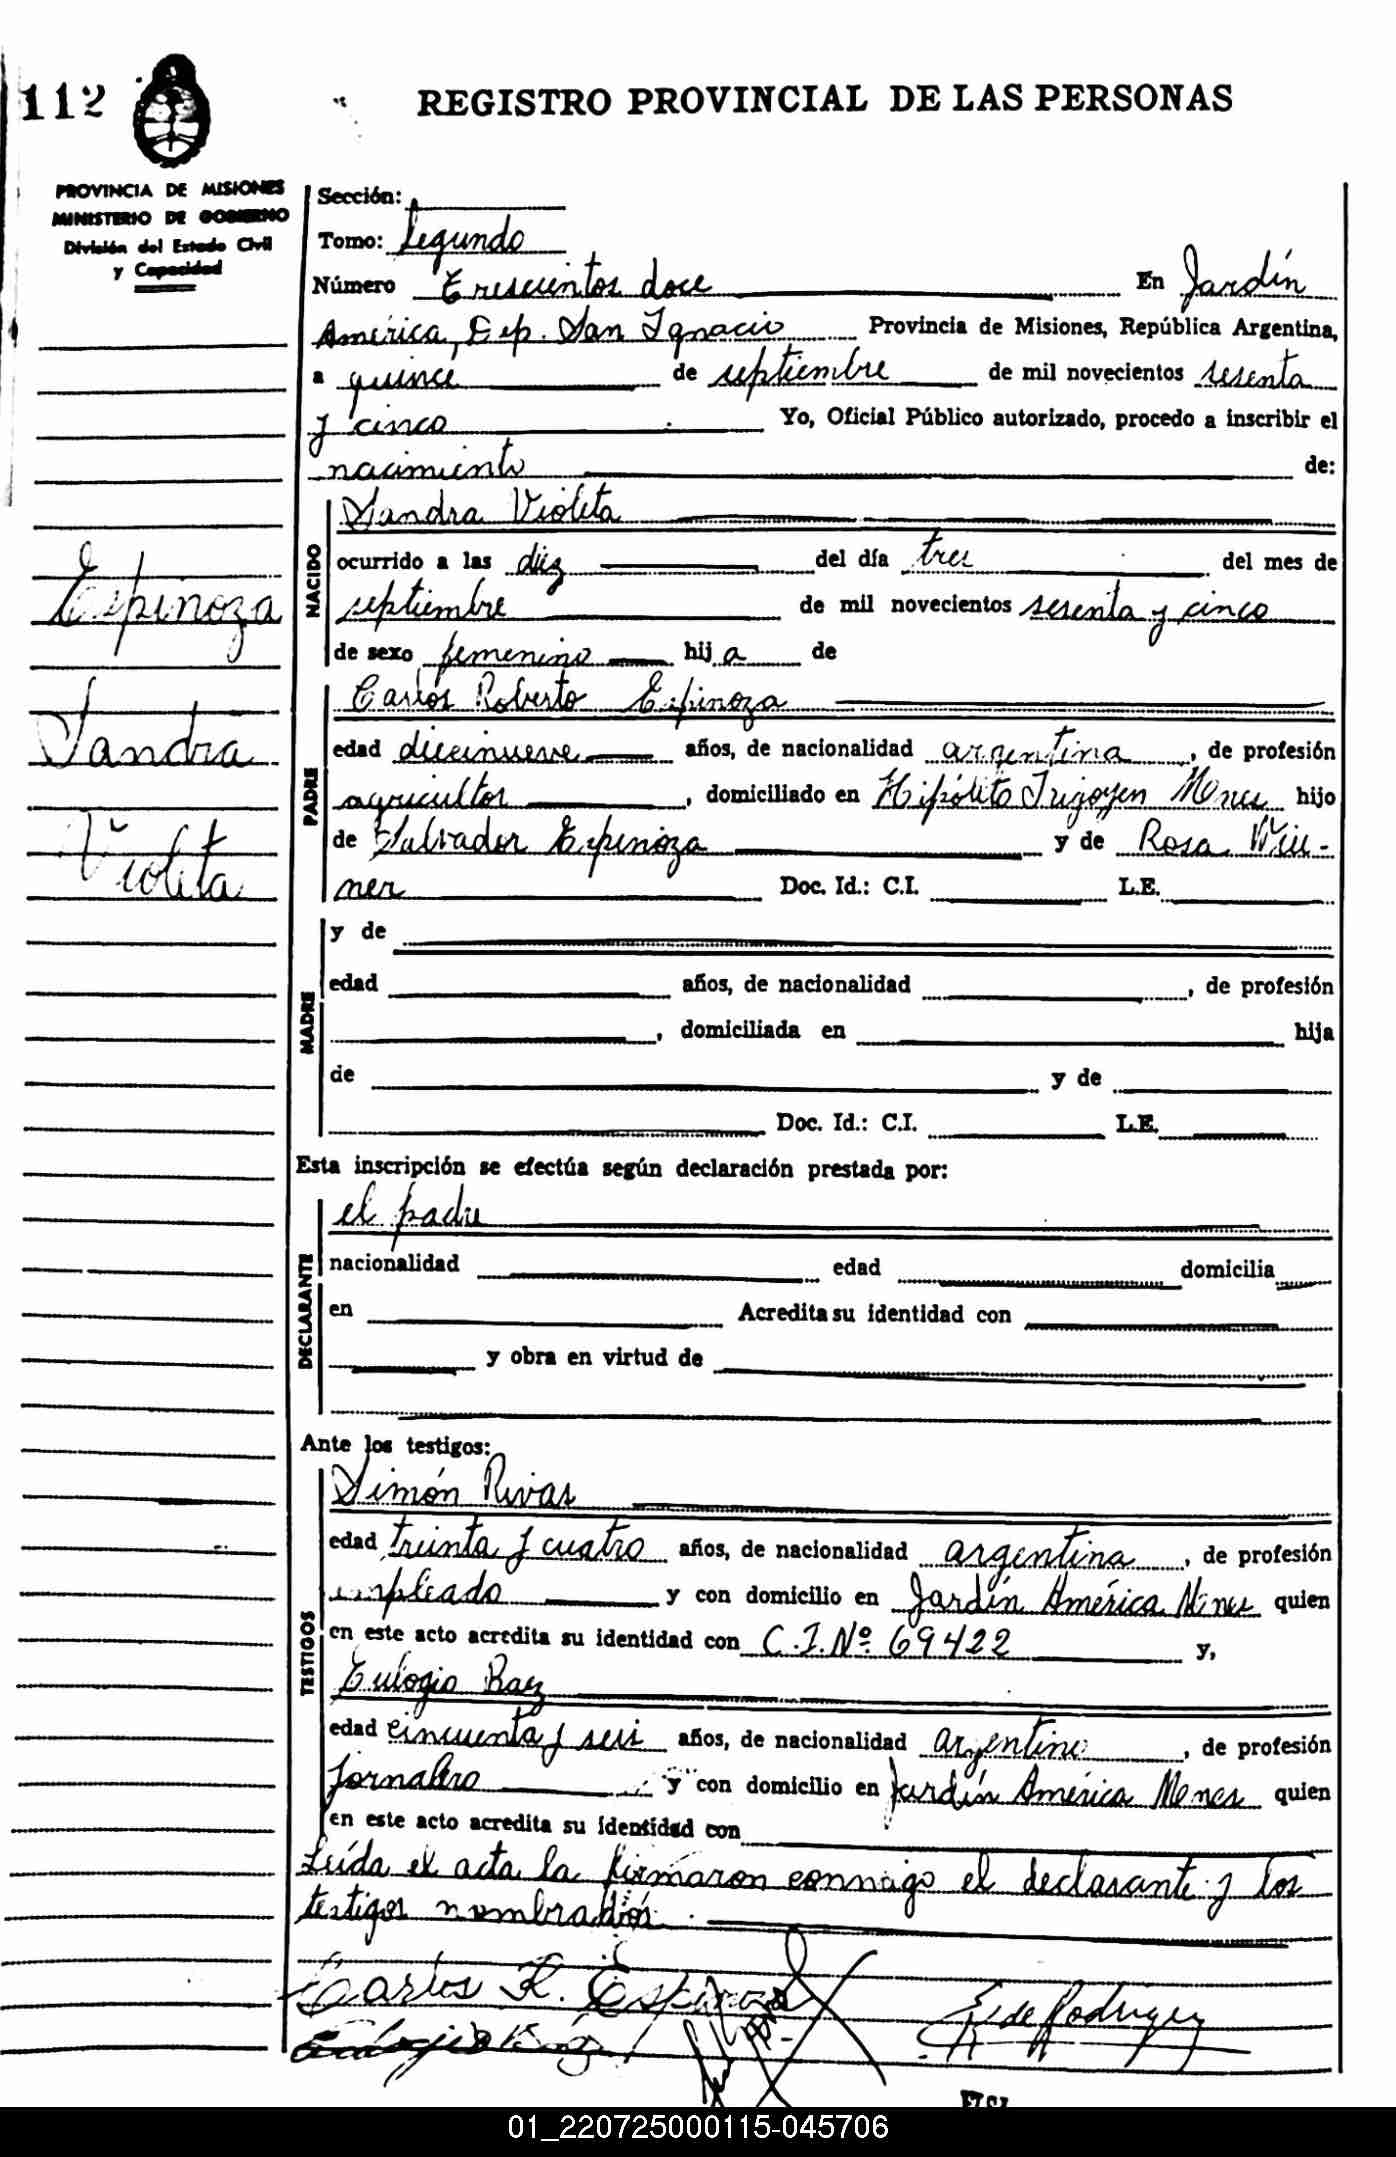 112
REGISTRO PROVINCIAL DE LAS PERSONAS
PROVINCIA DE MISIONES
MINISTERIO DE GOBIERNO
División del Estado Civil
y Capacidad
Sección:
Tomo: Segundo
Número Trescientos doce En Jardín
América, Dep. San Ignacio Provincia de Misiones, República Argentina,
a quince de septiembre de mil novecientos sesenta
y cinco Yo, Oficial Público autorizado, procedo a inscribir el
nacimiento de:
Espinoza
Sandra
Violeta
NACIDO
Sandra Violeta
ocurrido a las diez del día tres del mes de
septiembre de mil novecientos sesenta y cinco
de sexo femenino hij a de
PADRE
Carlos Roberto Espinoza
edad diecinueve años, de nacionalidad argentina, de profesión
agricultor, domiciliado en Hipólito Irigoyen Mnes hijo
de Salvador Espinoza y de Rosa Wie-
ner Doc. Id.: C.I. L.E.
MADRE
y de
edad años, de nacionalidad , de profesión
, domiciliada en hija
de y de
Doc. Id.: C.I. L.E.
Esta inscripción se efectúa según declaración prestada por:
DECLARANTE
el padre
nacionalidad edad domicilia
en Acredita su identidad con
y obra en virtud de
Ante los testigos:
TESTIGOS
Simón Rivas
edad treinta y cuatro años, de nacionalidad argentina, de profesión
empleado y con domicilio en Jardín América Mnes quien
en este acto acredita su identidad con C.I. Nº 69422 y,
Eulogio Baez
edad cincuenta y seis años, de nacionalidad argentino, de profesión
jornalero y con domicilio en Jardín América Mnes quien
en este acto acredita su identidad con
Leída el acta la firmaron conmigo el declarante y los
testigos nombrados.
Carlos R. Espinoza
de Rodriguez
01_220725000115-045706